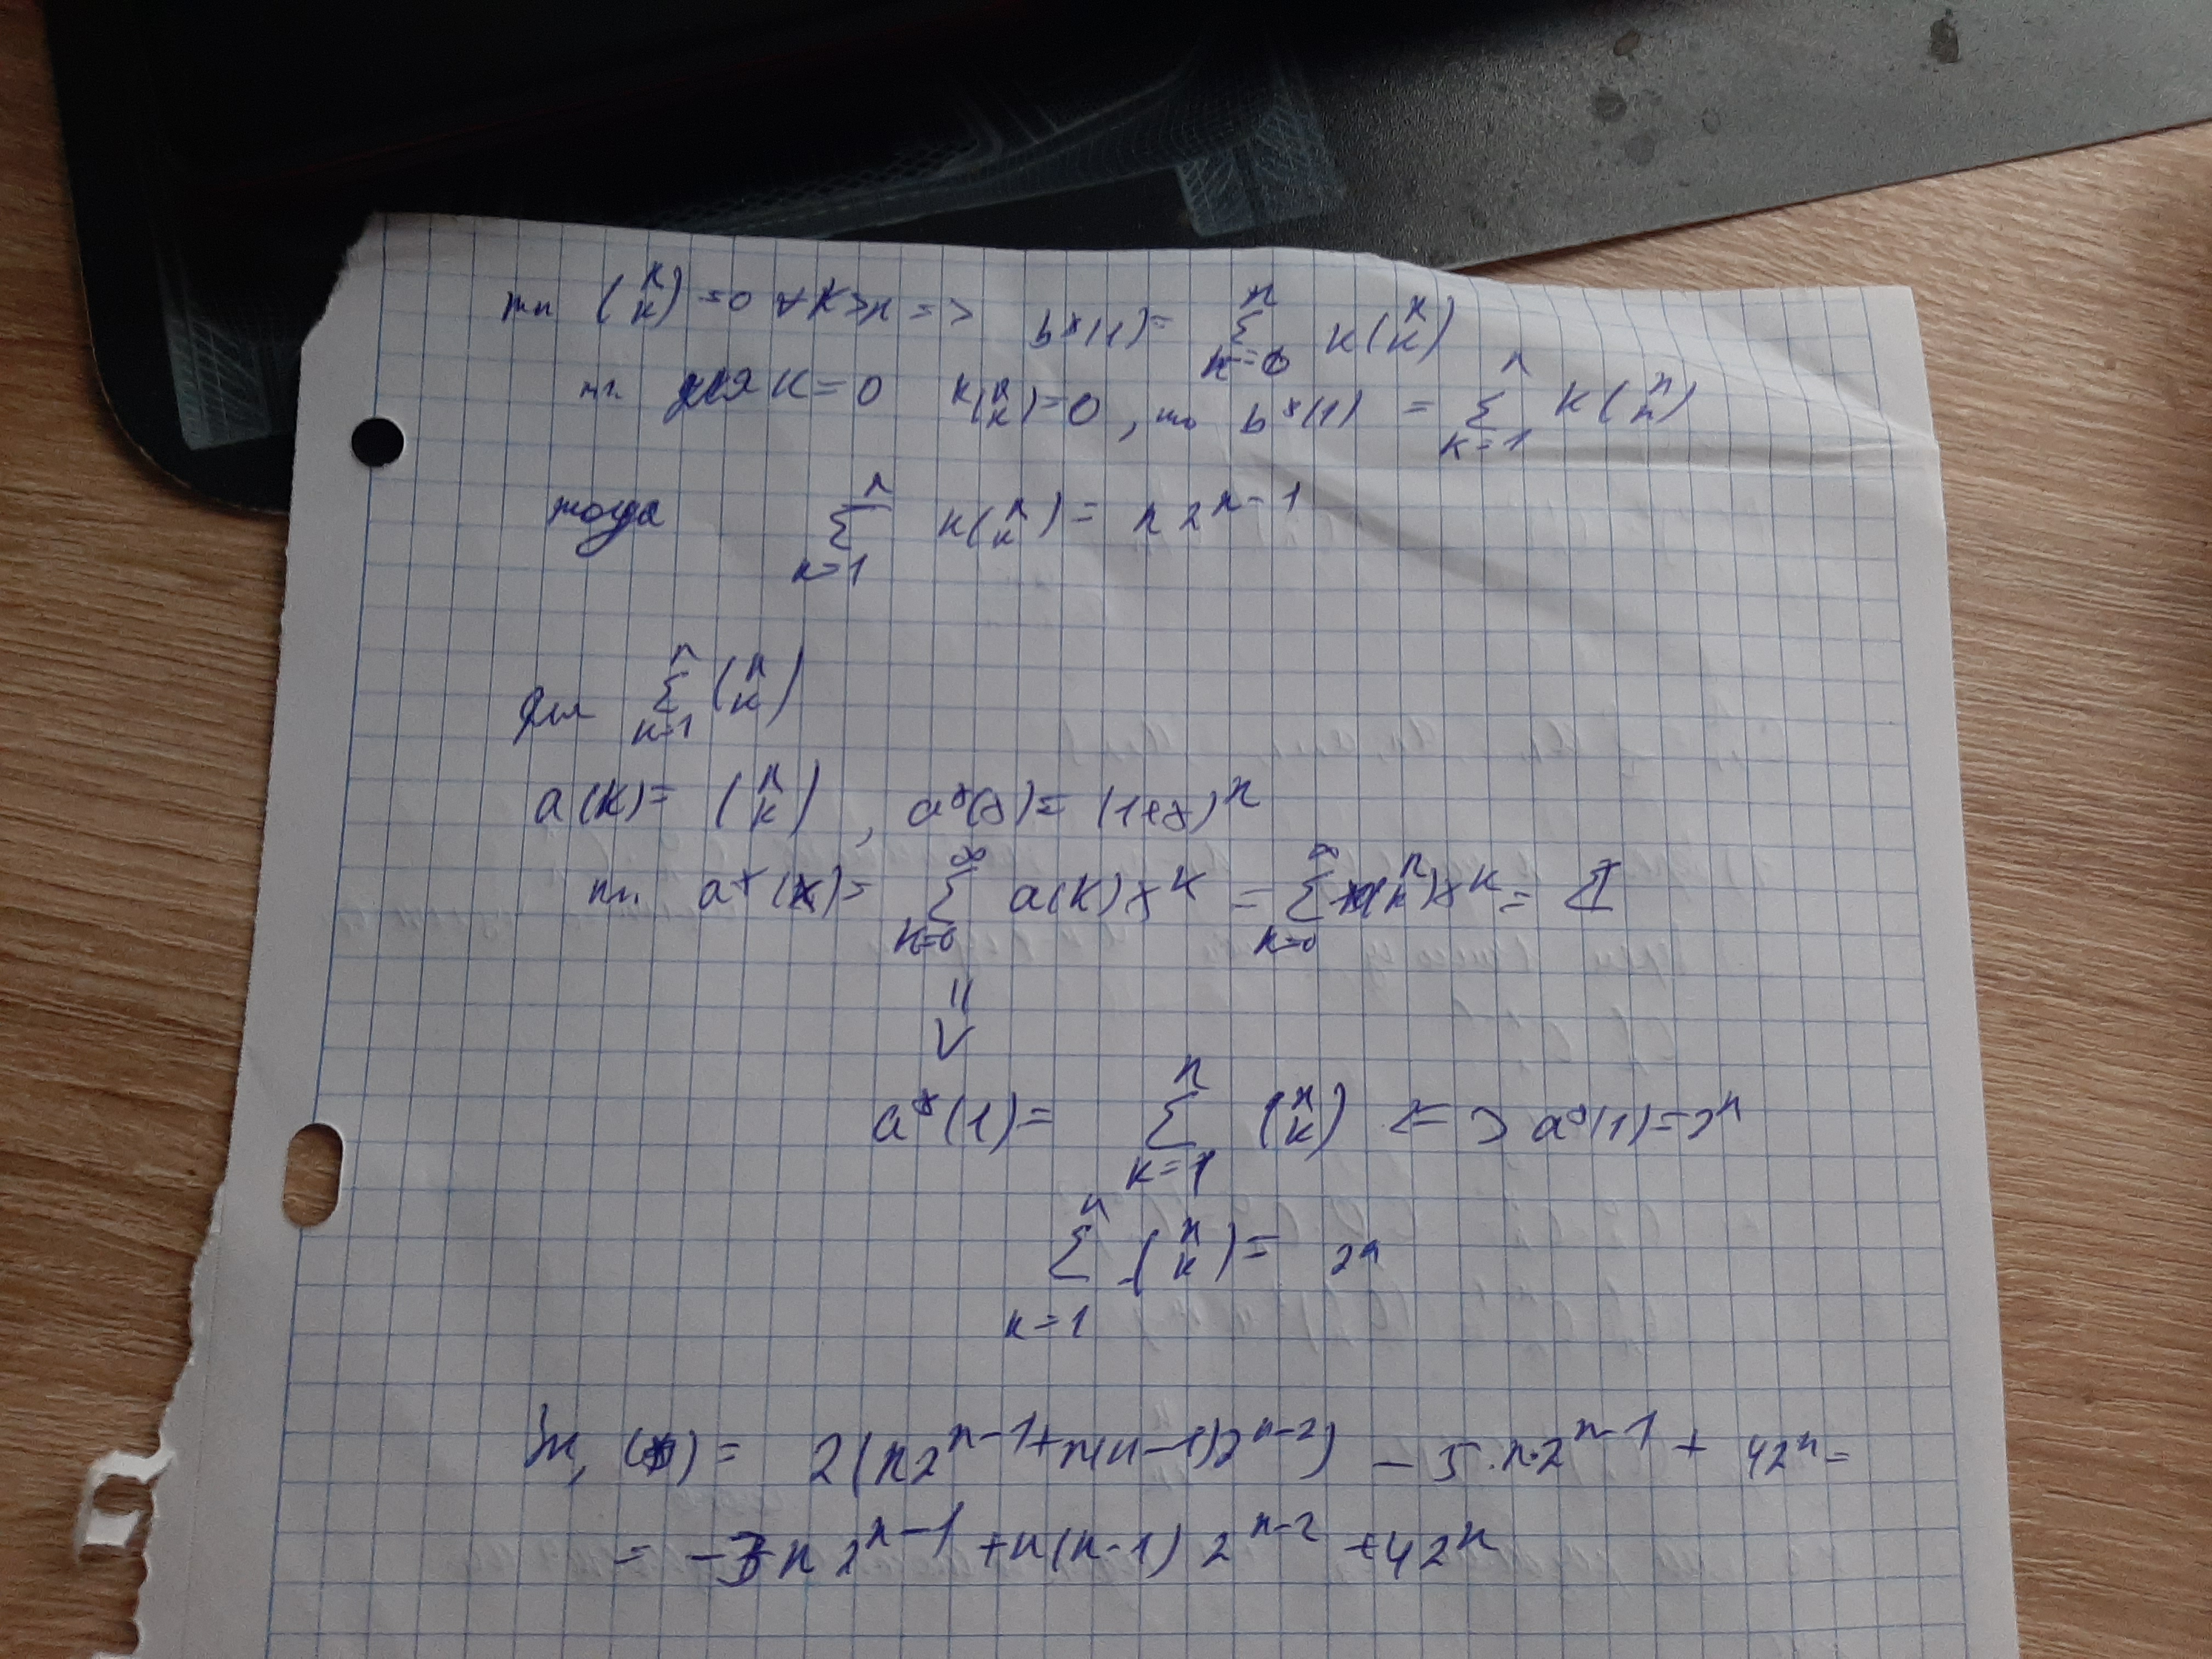 тк (n k) = 0 ∀ k>n => b*(1) = Σ_{k=0}^{n} k(n k)
тк для k=0 k(n k)=0, то b*(1) = Σ_{k=1}^{n} k(n k)
тогда Σ_{k=1}^{n} k(n k) = n 2^{n-1}
Для Σ_{k=1}^{n} (n k)
a(k) = (n k), a*(x) = (1+x)^n
тк a*(x) = Σ_{k=0}^{∞} a(k) x^k = Σ_{k=0}^{n} (n k) x^k =
⇓
a*(1) = Σ_{k=1}^{n} (n k) => a*(1) = 2^n
Σ_{k=1}^{n} (n k) = 2^n
= 2(n 2^{n-1} + n(n-1)2^{n-2}) - 5·n·2^{n-1} + 4 2^n =
= -3 n 2^{n-1} + n(n-1) 2^{n-2} + 4 2^n